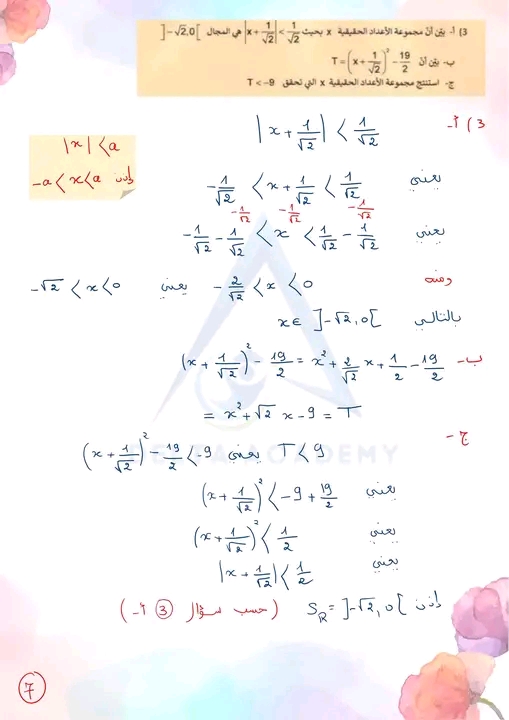 3) أ- بيّن أنّ مجموعة الأعداد الحقيقية x بحيث |x + 1/√2| < 1/√2 هي المجال ]-√2,0[
ب- بيّن أنّ T = (x + 1/√2)² - 19/2
ج- استنتج مجموعة الأعداد الحقيقية x التي تحقق T < -9
3) أ- |x + 1/√2| < 1/√2
|x| < a
إذن -a < x < a
يعني -1/√2 < x + 1/√2 < 1/√2
-1/√2 -1/√2 -1/√2
يعني -1/√2 - 1/√2 < x < 1/√2 - 1/√2
ومنه -2/√2 < x < 0 يعني -√2 < x < 0
بالتالي x ∈ ]-√2, 0[
ب- (x + 1/√2)² - 19/2 = x² + 2/√2 x + 1/2 - 19/2
= x² + √2 x - 9 = T
ج-
T < 9 يعني (x + 1/√2)² - 19/2 < -9
DELTA ACADEMY
يعني (x + 1/√2)² < -9 + 19/2
يعني (x + 1/√2)² < 1/2
يعني |x + 1/√2| < 1/2
إذن S_R = ]-√2, 0[ (حسب سؤال 3 أ-)
7